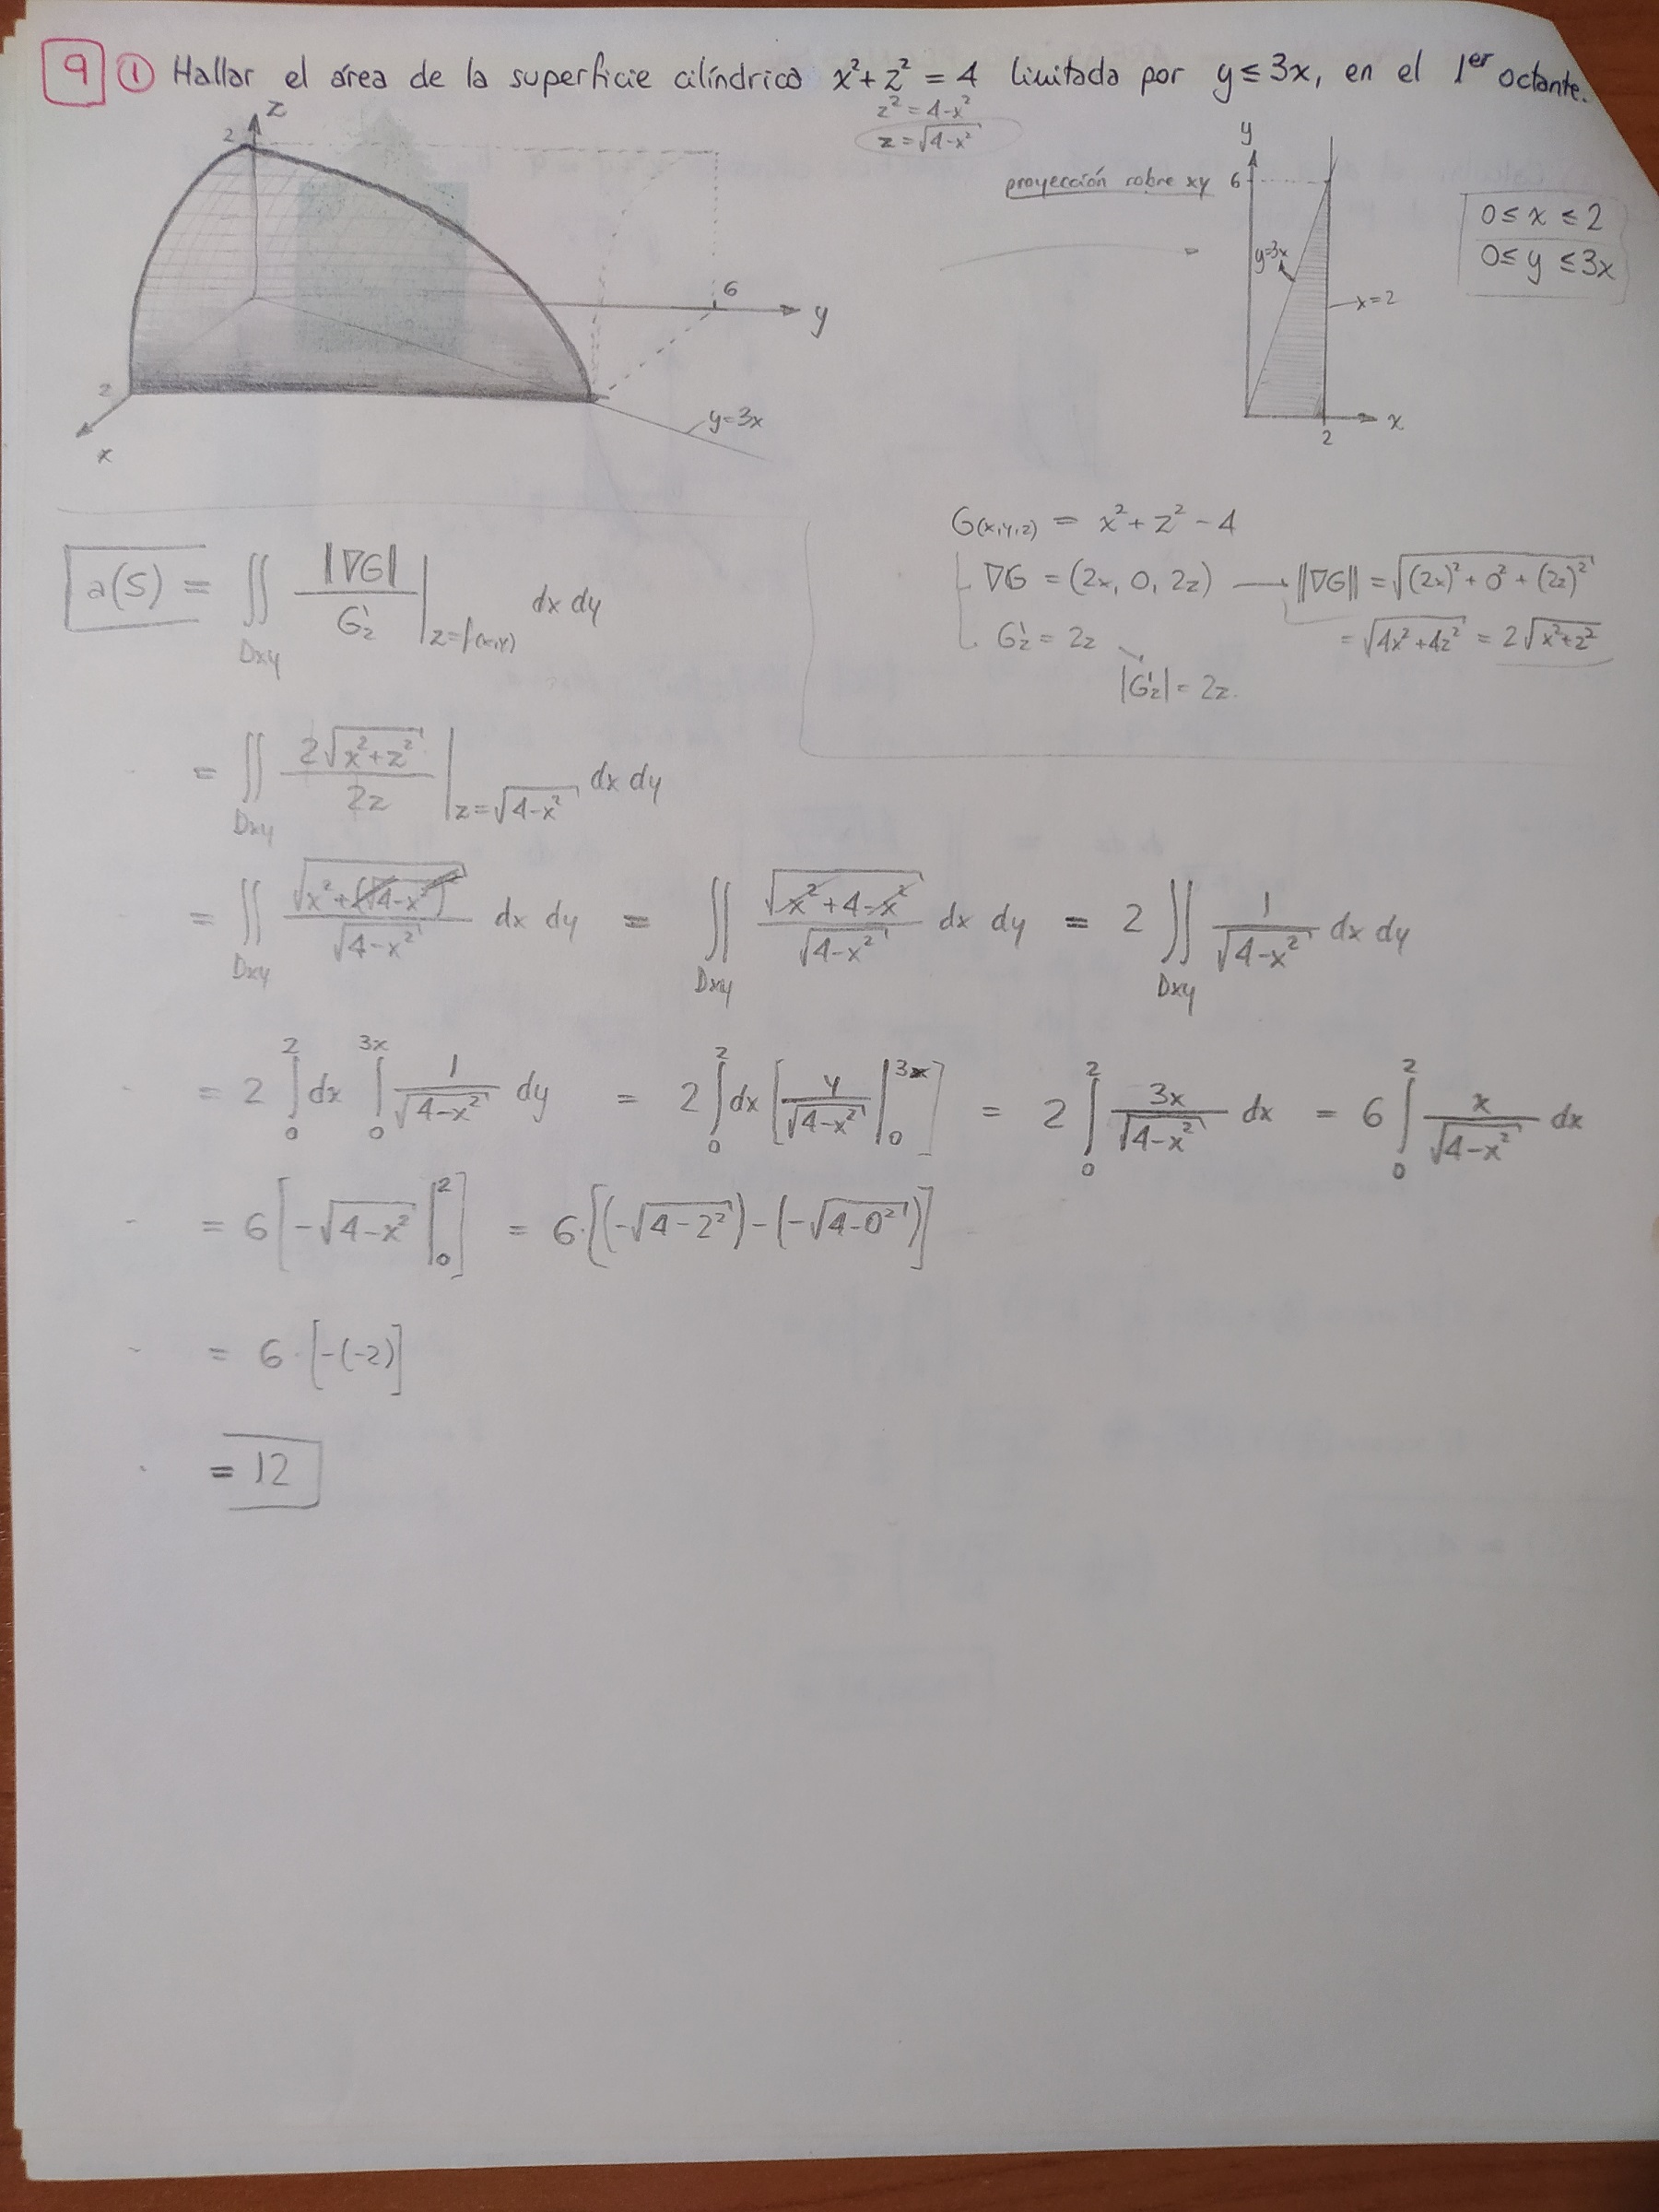 9 ① Hallar el área de la superficie cilíndrica x² + z² = 4 limitada por y ≤ 3x, en el 1er octante.
z² = 4-x²
z = √(4-x²)
z
2
6
y
2
x
y=3x
proyección sobre xy
y
6
y=3x
x=2
2
x
0 ≤ x ≤ 2
0 ≤ y ≤ 3x
G(x,y,z) = x² + z² - 4
∇G = (2x, 0, 2z) — ‖∇G‖ = √((2x)² + 0² + (2z)²)
= √(4x²+4z²) = 2√(x²+z²)
G'z = 2z
|G'z| = 2z.
a(S) = ∬Dxy ‖∇G‖ / G'z |z=f(x,y) dx dy
= ∬Dxy 2√(x²+z²) / 2z |z=√(4-x²) dx dy
= ∬Dxy √(x²+(√(4-x²))²) / √(4-x²) dx dy = ∬Dxy √(x²+4-x²) / √(4-x²) dx dy = 2 ∬Dxy 1/√(4-x²) dx dy
= 2 ∫₀² dx ∫₀³ˣ 1/√(4-x²) dy = 2 ∫₀² dx [y/√(4-x²) |₀³ˣ] = 2 ∫₀² 3x/√(4-x²) dx = 6 ∫₀² x/√(4-x²) dx
= 6 [-√(4-x²) |₀²] = 6·[(-√(4-2²)) - (-√(4-0²))]
= 6·[-(-2)]
= 12